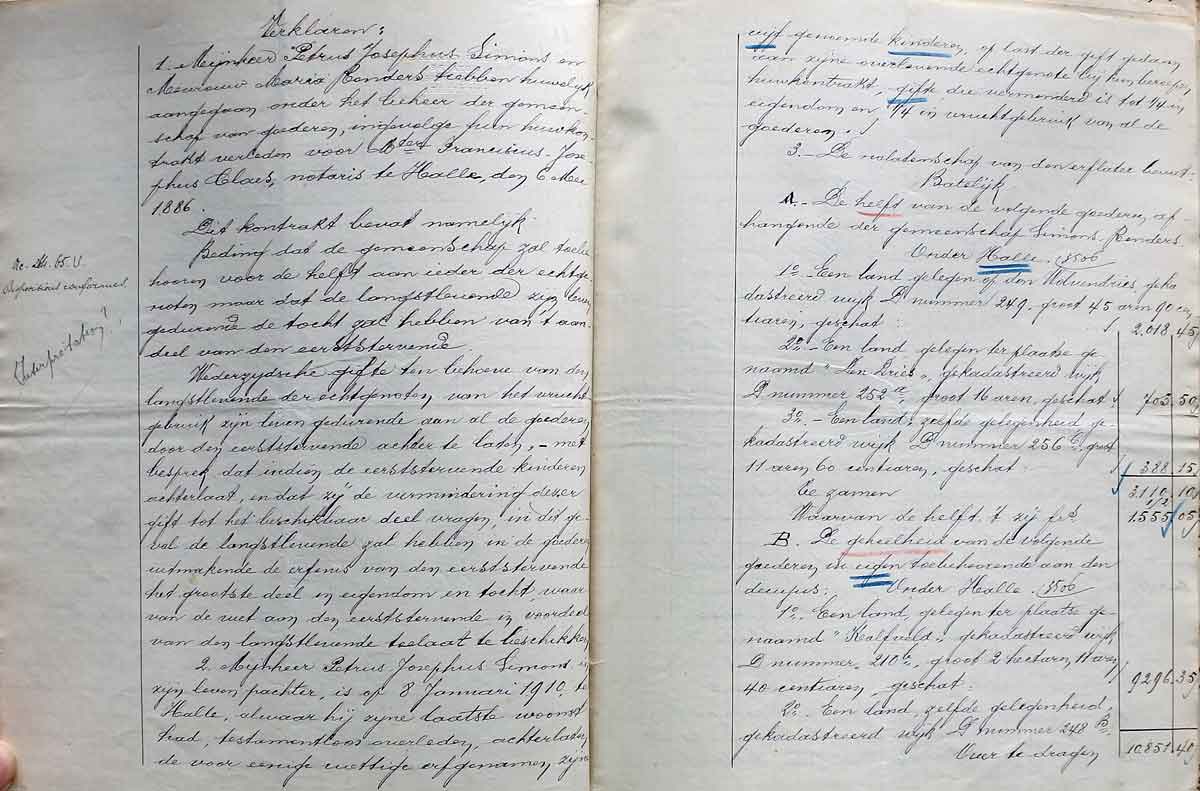 Verklaren:
1. Mijnheer Petrus Josephus Simons en
Mevrouw Maria Renders hebben huwelijk
aangegaan onder het beheer der gemeen
schap van goederen, ingevolge hun huwkon-
trakt verleden voor Mter Franciscus-Jose-
phus Claes, notaris te Halle, den 6 Mei
1886.
Dit kontrakt bevat namelijk:
Beding dat de gemeenschap zal toebe
hooren voor de helft aan ieder der echtge
noten maar dat de langstlevende zijn leven
gedurende de tocht zal hebben van 't aan-
deel van den eerststervende.
Wederzydsche gifte ten behoeve van den
langstlevende der echtgenoten van het vrucht
gebruik zijn leven gedurende aan al de goederen
door den eerststervende achter te laten, - met
besprek dat indien de eerststervende kinderen
achterlaat, en dat zij de vermindering dezer
gift tot het beschikbaar deel vragen, in dit ge-
val de langstlevende zal hebben in de goederen
uitmakende de erfenis van den eerststervende
het grootste deel in eigendom en tocht waar
van de wet aan den eerststervende in voordeel
van den langstlevende toelaat te beschikken
2. Mijnheer Petrus Josephus Simons in
zijn leven pachter, is op 8 Januari 1910 te
Halle, alwaar hij zijne laatste woonst
had, testamentloos overleden, achterlaten
de voor eenige wettige erfgenamen, zijne
Interpretation?
vijf gemeende kinderen, op last der gift gedaan
aan zijne overlevende echtgenote bij hun beroepen
huwkontrakt, gifte die verminderd is tot 1/4 in
eigendom en 1/4 in vruchtgebruik van al de
goederen.
3.- De nalatenschap van den erflater bevat:
Batelijk
A.- De helft van de volgende goederen, af-
hangende der gemeenschap Simons-Renders.
Onder Halle. 3506
1o.- Een land gelegen op den Wolvendries geka
dastreerd wijk D nummer 249, groot 45 aren 90 cen
tiaren, geschat: 2.018 45
2o.- Een land gelegen ter plaatse ge
naamd "Den Dries", gekadastreerd wijk
D nummer 252a, groot 16 aren, geschat 703.50
3o.- Een land, zelfde gelegenheid ge-
kadastreerd wijk D nummer 256c, groot
11 aren 60 centiaren, geschat: 388 15
Te zamen 3.110 10
1/2
Waarvan de helft 't zij frs. 1.555 05
B. De geheelheid van de volgende
goederen, in eigen toebehoorende aan den
decujus: Onder Halle. 3506
1o.- Een land, gelegen ter plaatse ge-
naamd "Kalfveld", gekadastreerd wijk
D nummer 210a, groot 2 hectaren, 11 aren
40 centiaren, geschat: 9296.35
2o. Een land, zelfde gelegenheid,
gekadastreerd wijk D nummer 248 B.
Over te dragen 10.851.40